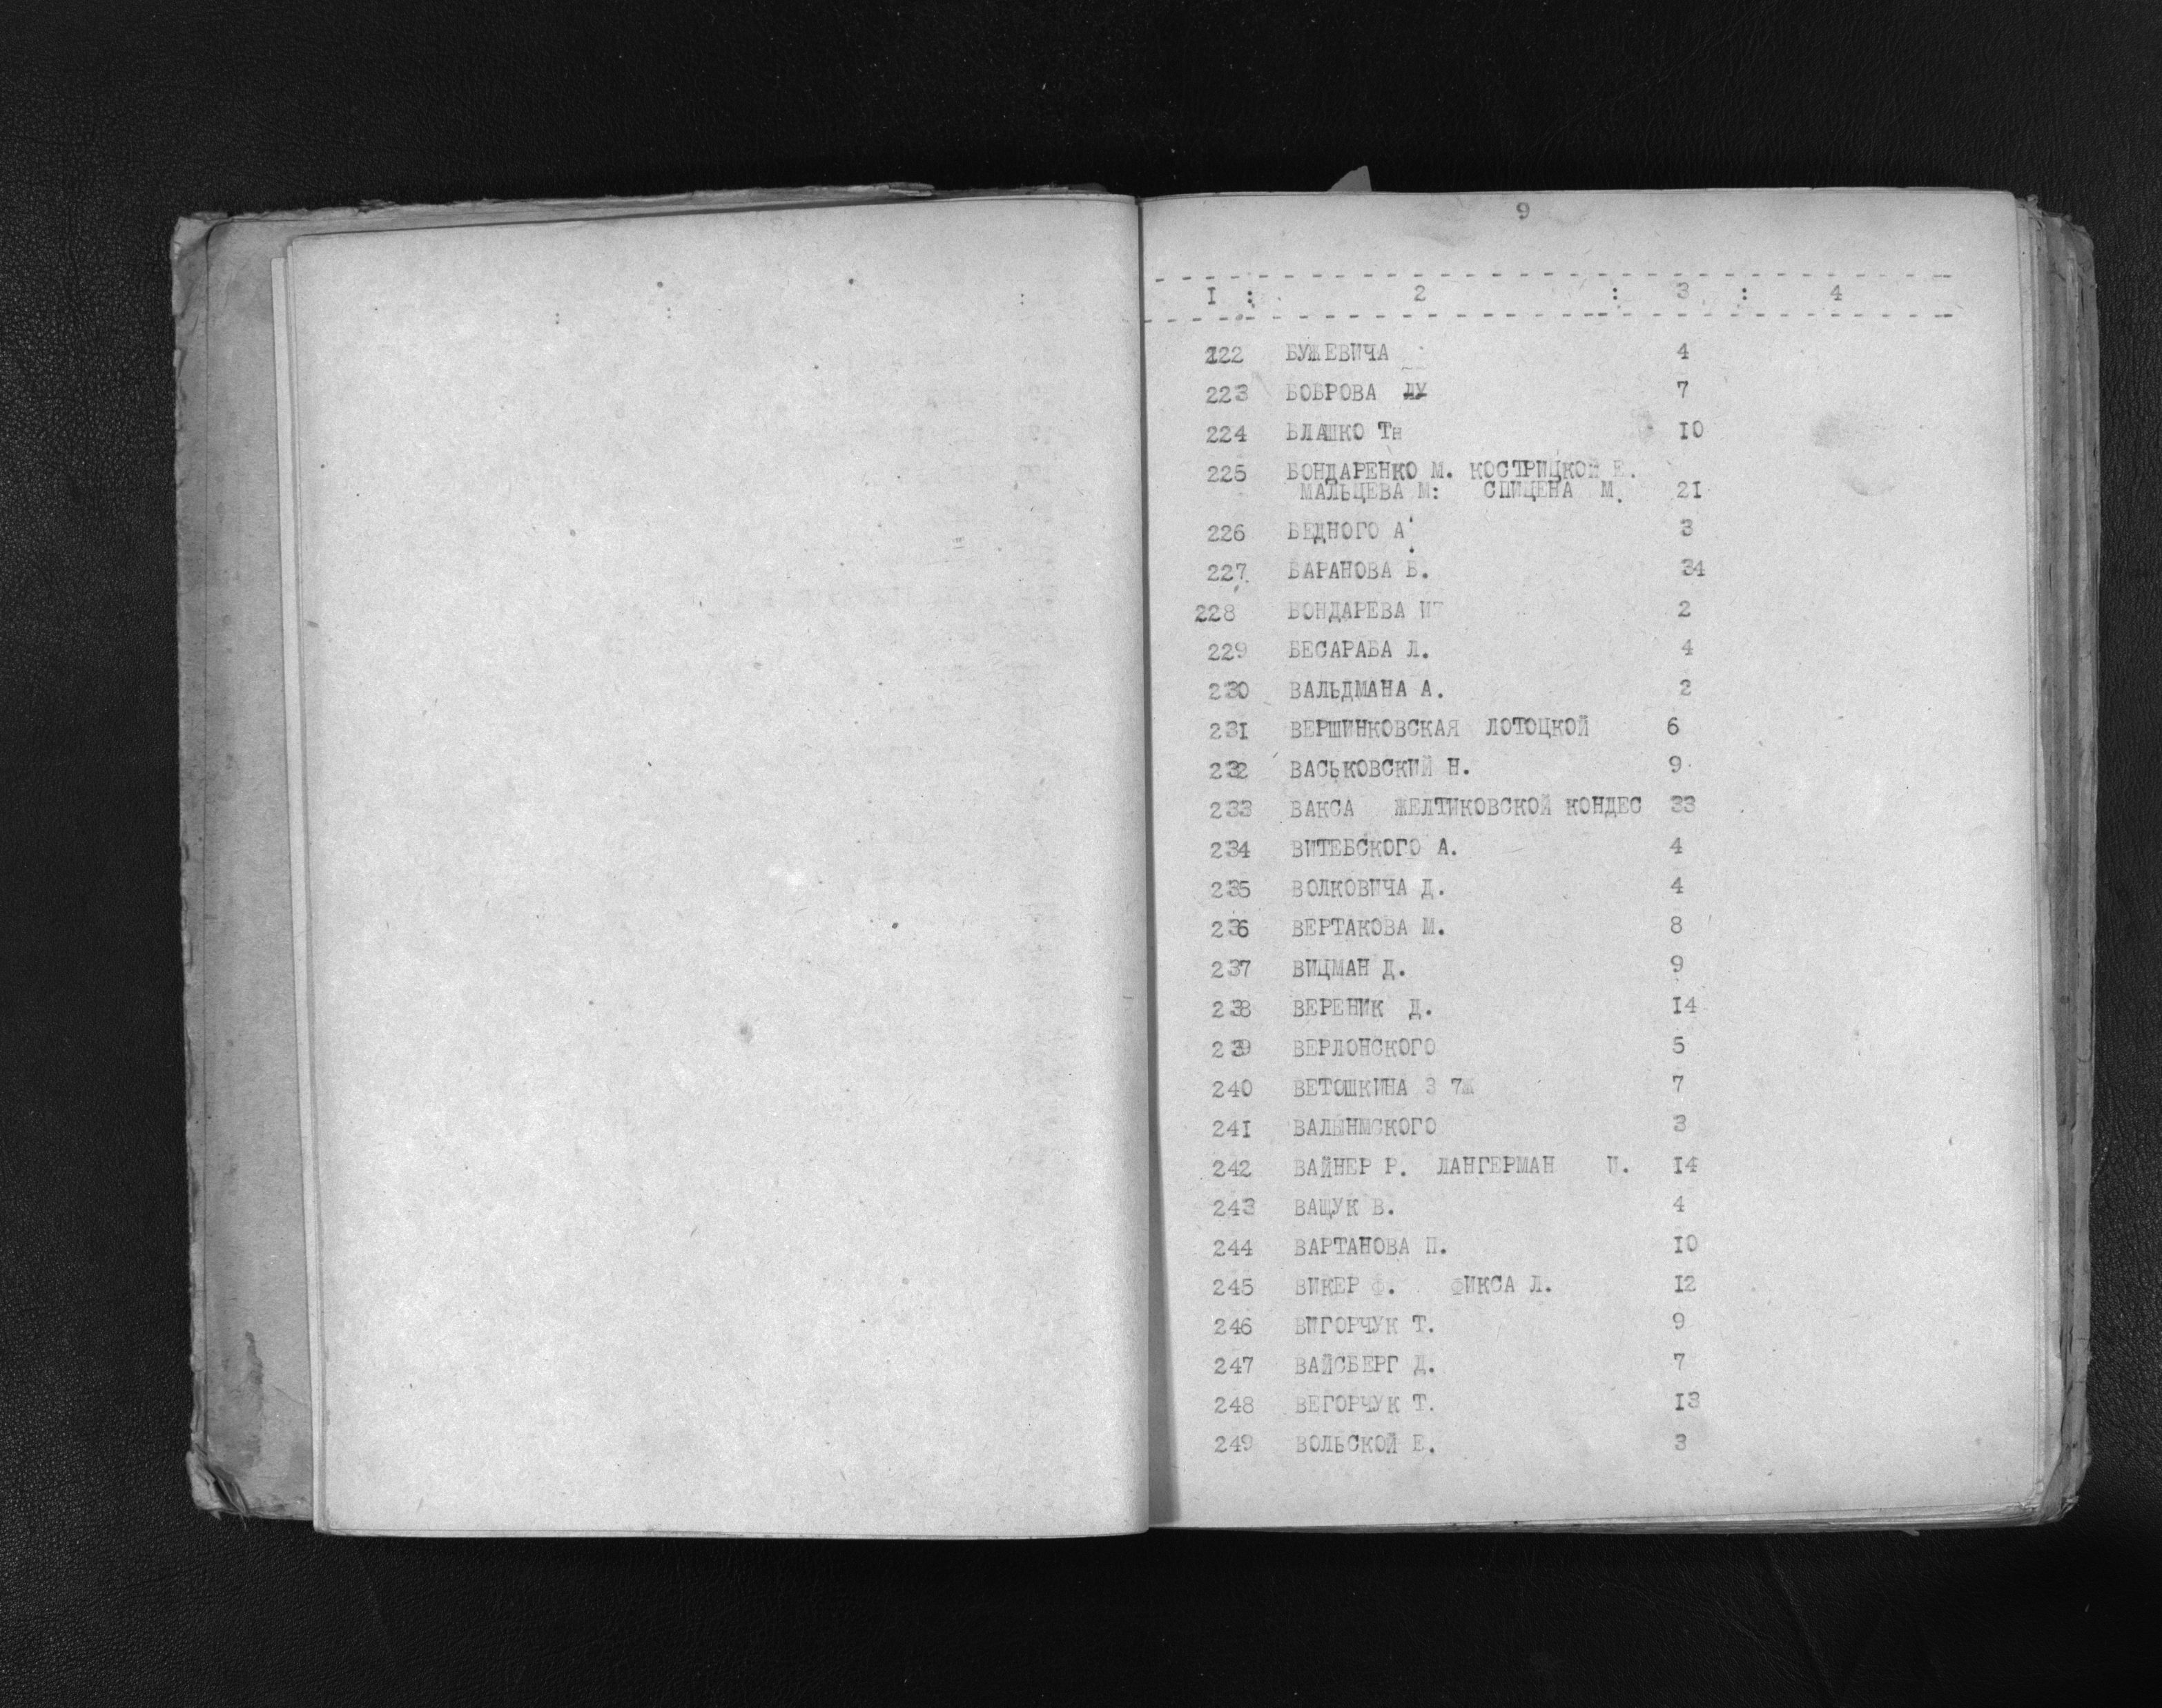 9
I : 2 : 3 : 4
222 БУЖЕВИЧА 4
223 БОБРОВА 7
224 БЛАШКО Тн 10
225 БОНДАРЕНКО М. КОСТРИЦКОЙ Е.
МАЛЬЦЕВА М: СПИЦЕНА М. 2I
226 БЕДНОГО А 3
227 БАРАНОВА Б. 34
228 БОНДАРЕВА 2
229 БЕСАРАБА Л. 4
230 ВАЛЬДМАНА А. 2
23I ВЕРШИНКОВСКАЯ ЛОТОЦКОЙ 6
232 ВАСЬКОВСКИЙ Н. 9
233 ВАКСА ЖЕЛТИКОВСКОЙ КОНДЕС 33
234 ВИТЕБСКОГО А. 4
235 ВОЛКОВИЧА Д. 4
236 ВЕРТАКОВА М. 8
237 ВИЦМАН Д. 9
238 ВЕРЕНИК Д. I4
239 ВЕРЛОНСКОГО 5
240 ВЕТОШКИНА З 7Ж 7
24I 3
242 ВАЙНЕР Р. ЛАНГЕРМАН И. I4
243 ВАЩУК В. 4
244 ВАРТАНОВА П. I0
245 ВИКЕР Ф. ФИКСА Л. I2
246 ВИГОРЧУК Т. 9
247 ВАЙСБЕРГ Д. 7
248 ВЕГОРЧУК Т. I3
249 ВОЛЬСКОЙ Е. 3